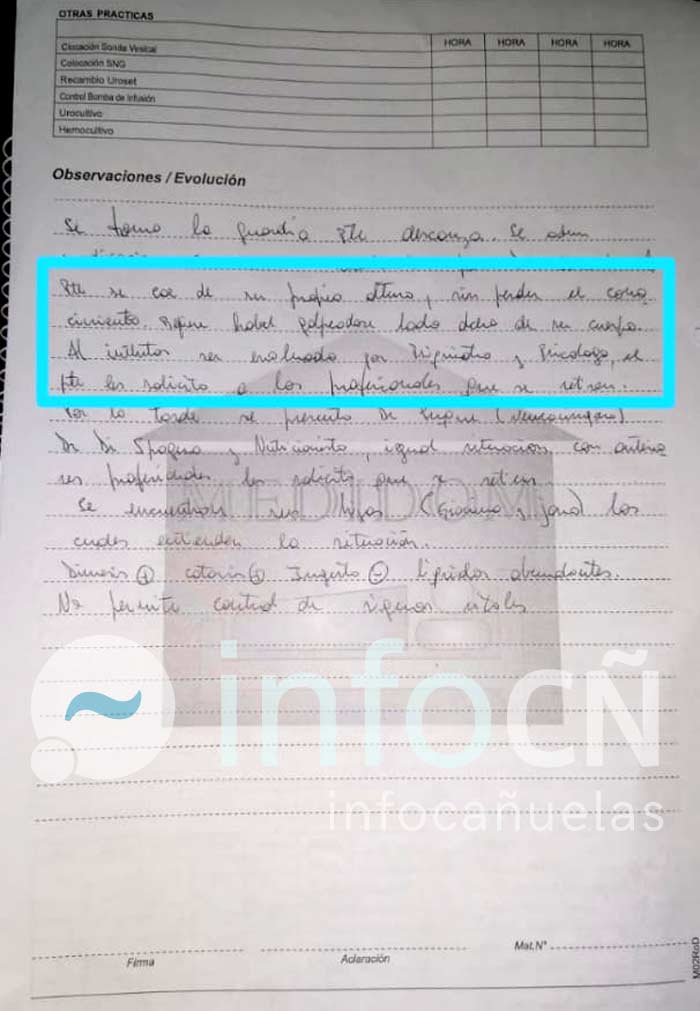 OTRAS PRACTICAS
HORA HORA HORA HORA
Colocación SNG
Recambio Uroset
Control Bomba de Infusión
Urocultivo
Hemocultivo
Observaciones / Evolución
Se tomo la guardia Pte descanza. Se
Pte se cae de su propio altura, sin perder el cono
cimiento. Refiere haber golpeadose lado dcho de su cuerpo.
Al intentar ser evaluado por y Psicologo, el
Pte les solicito a los profesionales que se retiren.
Por la tarde se presento Dr
Dr Di Spagna y Nutricionista, igual situacion, con
profesionales, les solicito que se retiren
Se encuentran sus hijos y los
cuales entienden la situación.
Diuresis + catarsis + Ingesta - liquidos abundantes.
No permite control de signos vitales
MEDIDOM
infoCÑ
infocañuelas
Firma
Aclaración
Mat.N°